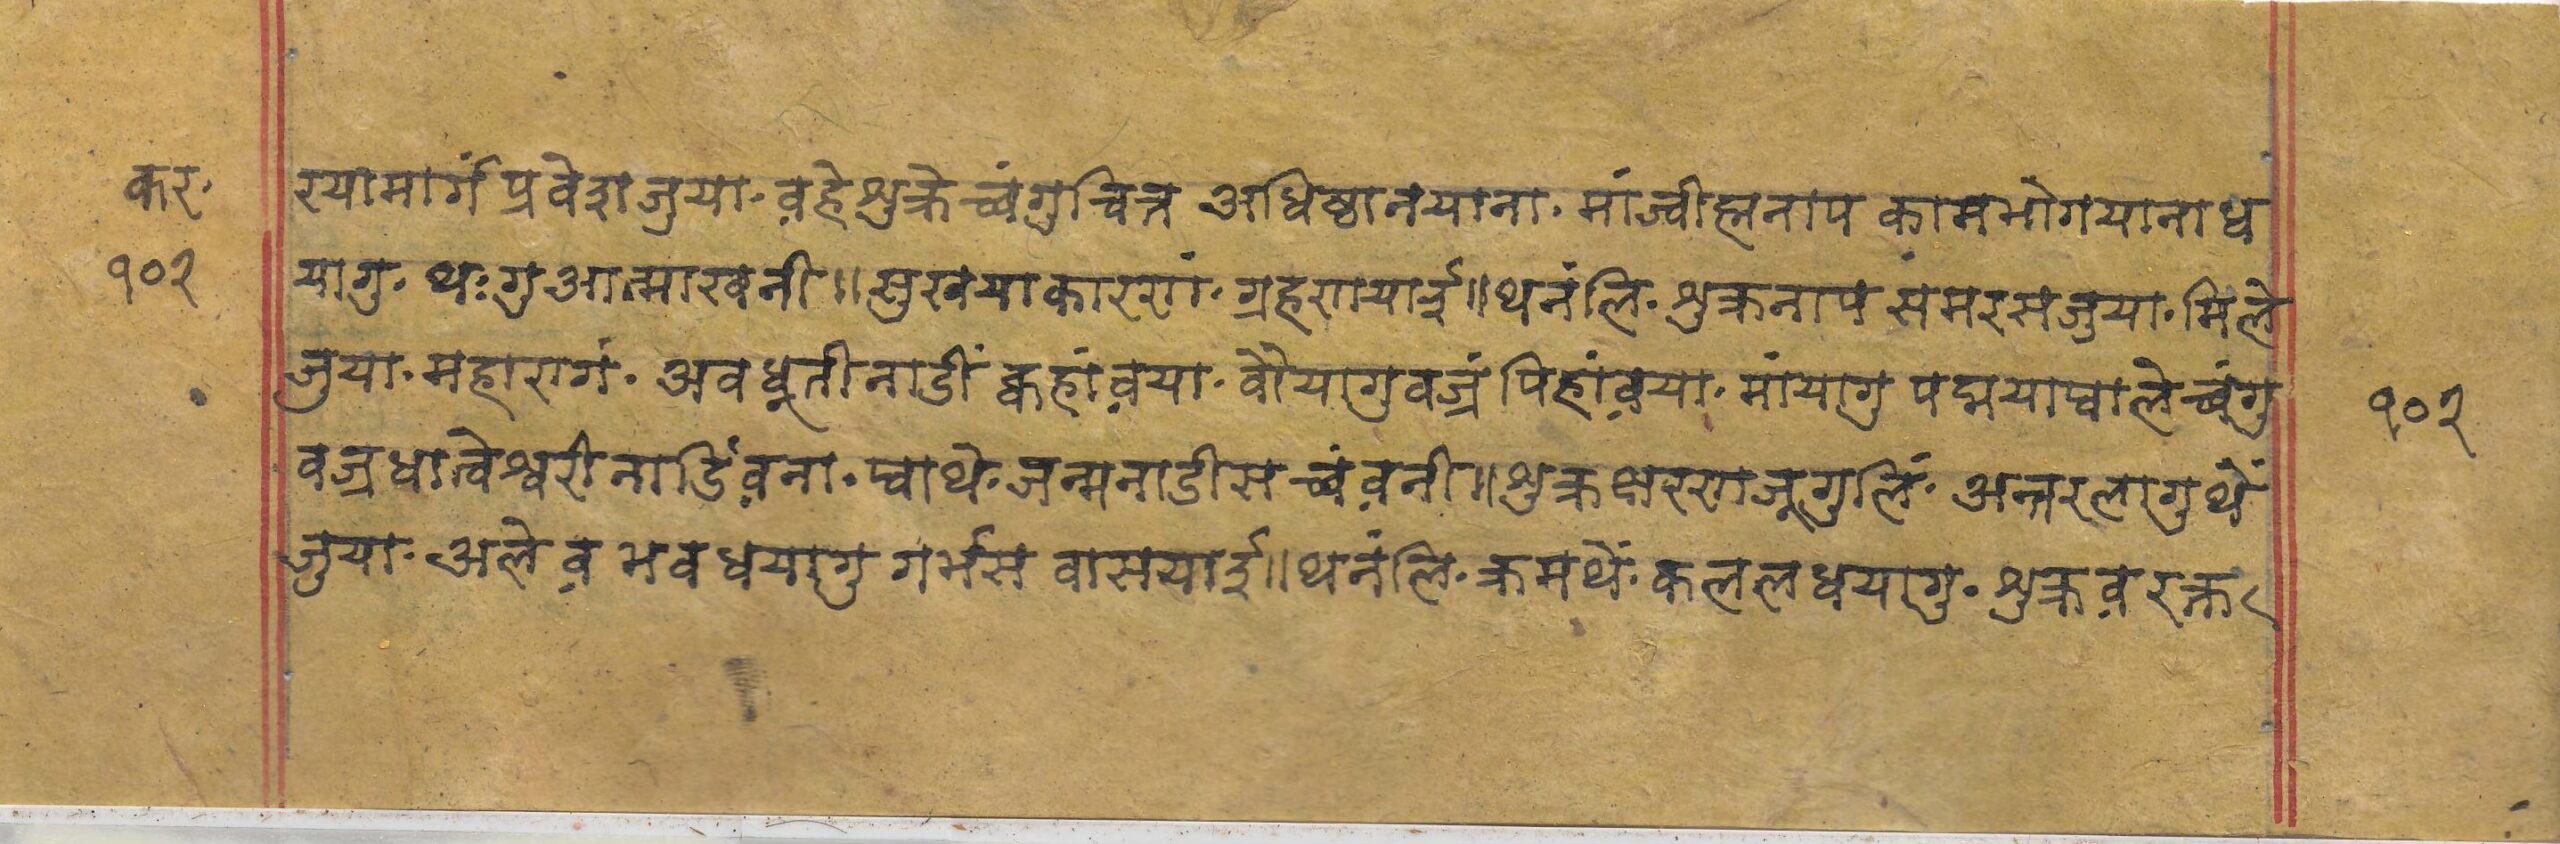 कर· रयामार्गं प्रवेश जुया· व़हे शुक्रे च्वंगु चित्त अधिष्ठानयाना· मां ज्वीह्मनाप कामभोगयाना ध्व
१०२ यागु· थःगु आत्मा ख़नी॥ सुखया कारणं· ग्रहणयाई॥ थनंलि· शुक्रनाप संमरस जुया· मिले
जुया· महारागं· अवधूती नाडीं क्वहां व़या· वौयागु वज्रं पिहां व़या· मांयागु पद्मया प्वाले च्वंगु १०२
वज्रधात्वेश्वरी नाडिं व़ना· प्वाथे· जन्मनाडीस च्वं व़नी॥ शुक्र क्षरण जूगुलिं· अन्तरलागु थें
जुया· अले व़ भव धयागु गर्भस वासयाई॥ थनंलि· क्रमथें· कलल धयागु· शुक्र व़ रक्त